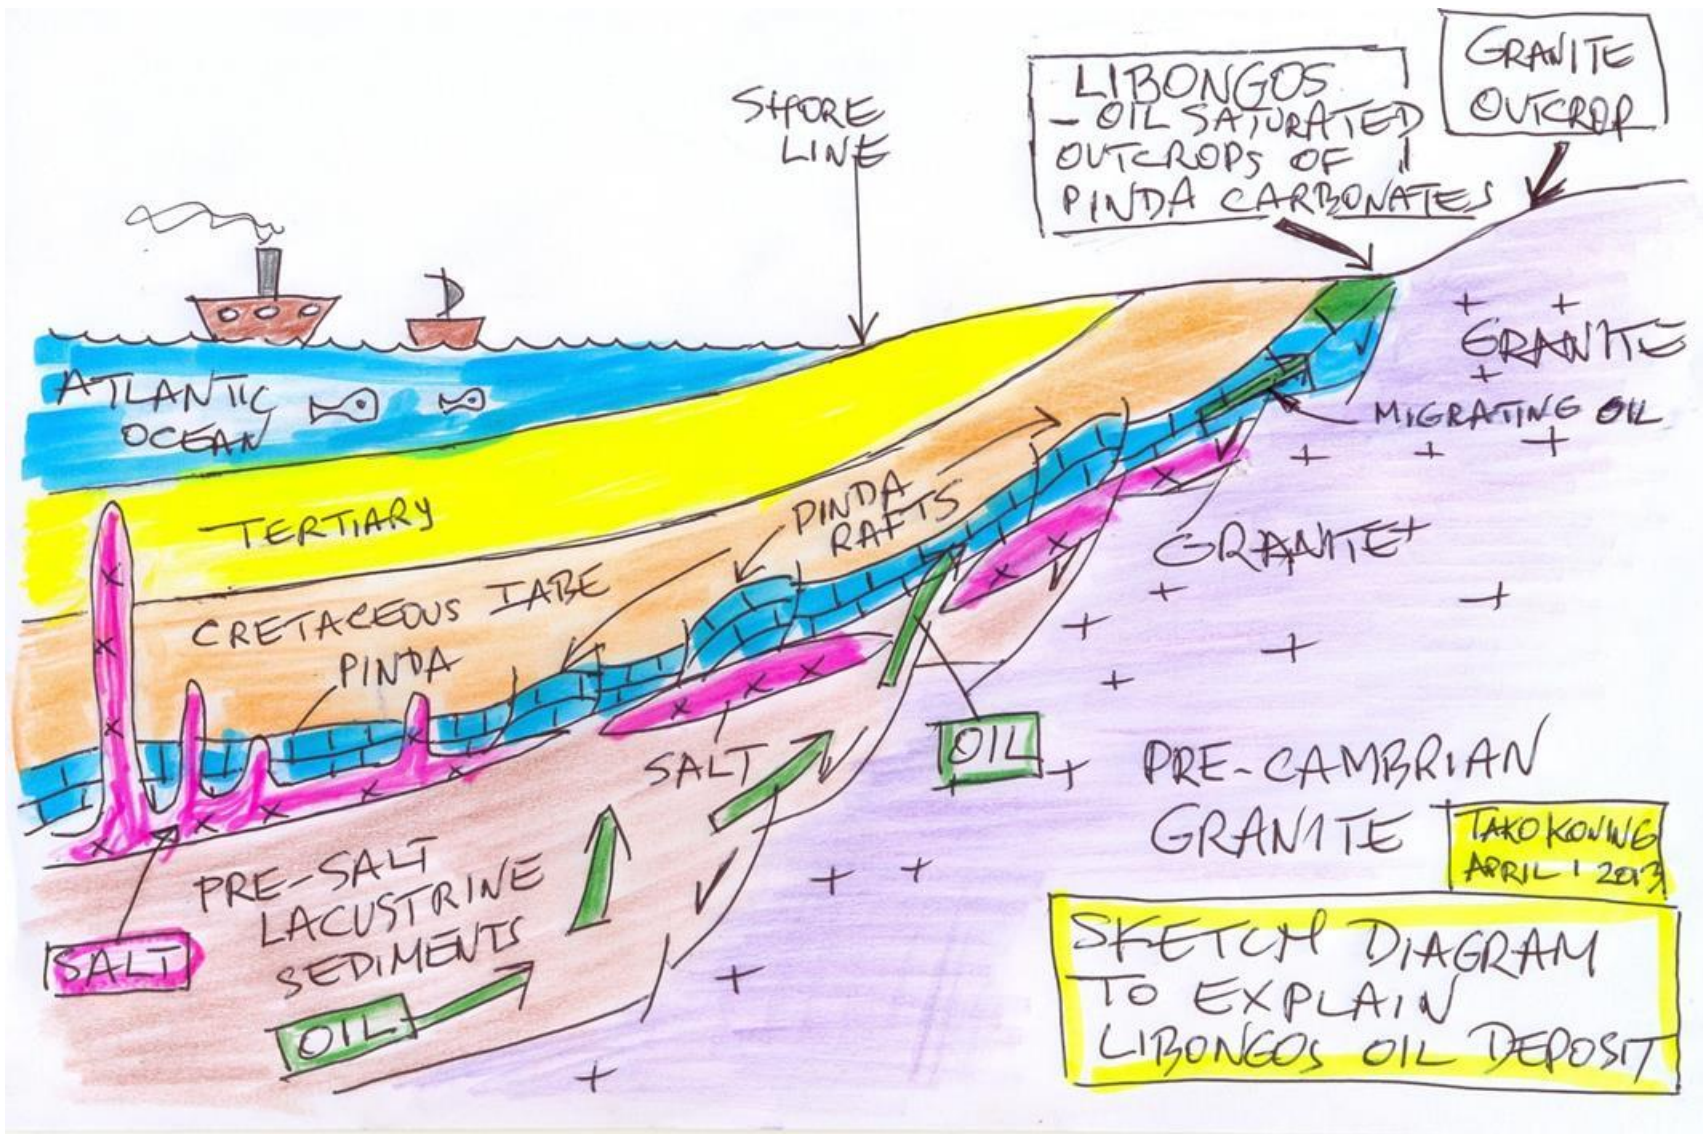 SHORE
LINE
LIBONGOS
- OIL SATURATED
OUTCROPS OF
PINDA CARBONATES
GRANITE
OUTCROP
ATLANTIC
OCEAN
GRANITE
MIGRATING OIL
TERTIARY
PINDA
RAFTS
GRANITE
CRETACEOUS IABE
PINDA
SALT
OIL
PRE-CAMBRIAN
GRANITE
TAKO KONING
APRIL 1 2013
PRE-SALT
LACUSTRINE
SEDIMENTS
SALT
OIL
SKETCH DIAGRAM
TO EXPLAIN
LIBONGOS OIL DEPOSIT